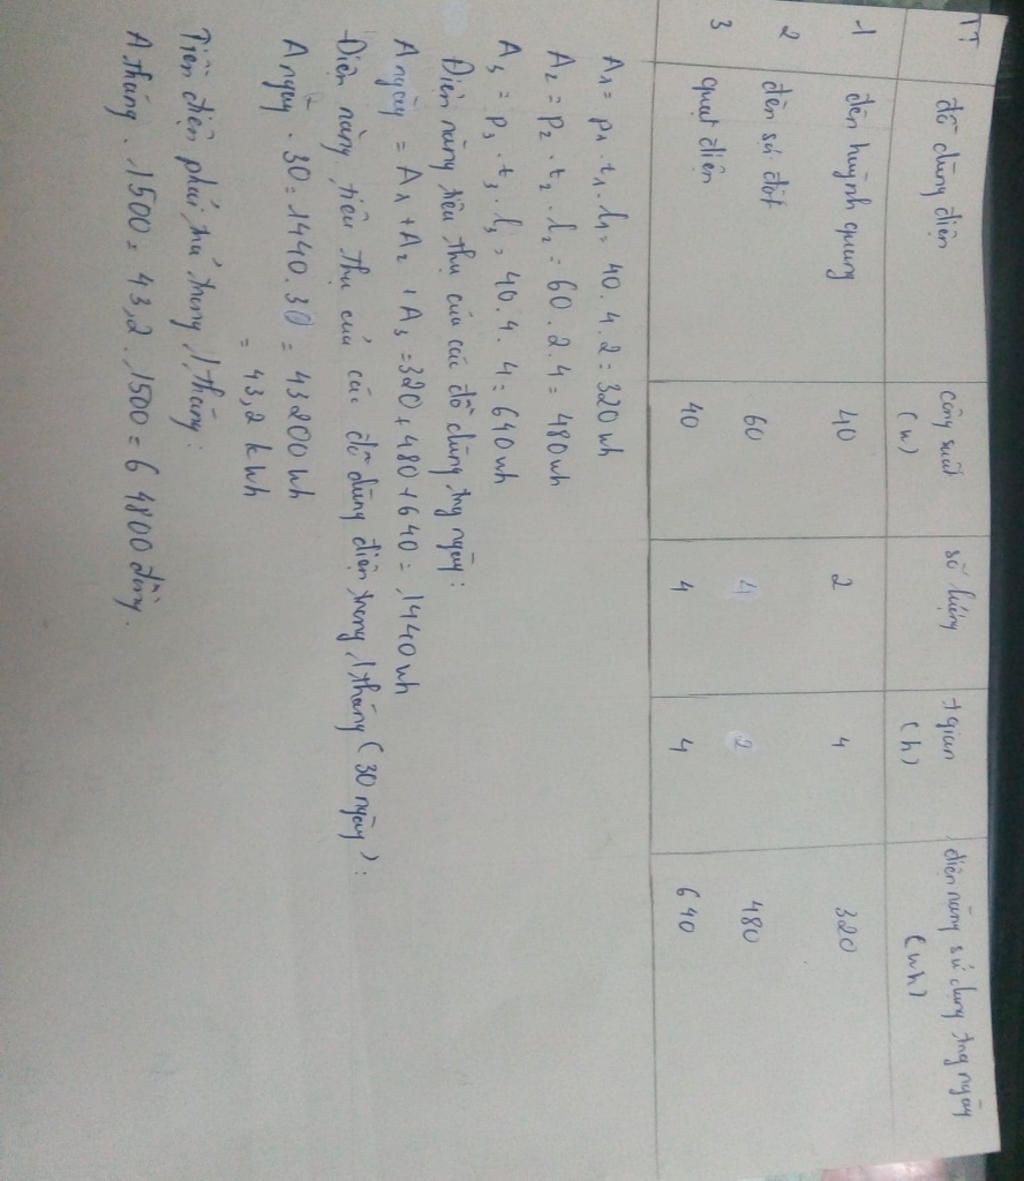 TT đồ dùng điện công suất (W) số lượng t gian (h) điện năng sử dụng tng ngày (Wh)
1 đèn huỳnh quang 40 2 4 320
2 đèn sợi đốt 60 4 2 480
3 quạt điện 40 4 4 640
A1 = P1 . t1 . l1 = 40 . 4 . 2 = 320 Wh
A2 = P2 . t2 . l2 = 60 . 2 . 4 = 480 Wh
A3 = P3 . t3 . l3 = 40 . 4 . 4 = 640 Wh
Điện năng tiêu thụ của các đồ dùng tng ngày :
A ngày = A1 + A2 + A3 = 320 + 480 + 640 = 1440 Wh
Điện năng tiêu thụ của các đồ dùng điện trong 1 tháng ( 30 ngày ) :
A ngày . 30 = 1440 . 30 = 43200 Wh
= 43,2 kWh
Tiền điện phải trả trong 1 tháng :
A tháng . 1500 = 43,2 . 1500 = 6 4800 đồng .